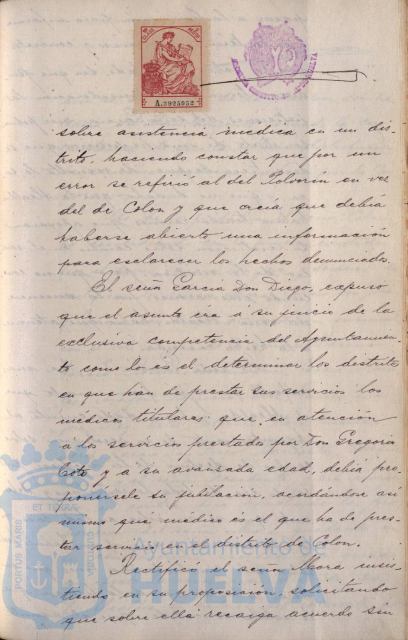 A.3925952
sobre asistencia medica en un dis-
trito, haciendo constar que por un
error se refirió al del Polvorin en vez
del de Colon y que creía que debía
haberse abierto una información
para esclarecer los hechos denunciados.
El señor Garcia Don Diego, expuso
que el asunto era á su juicio de la
exclusiva competencia del Ayuntamien-
to como lo es el determinar los distritos
en que han de prestar sus servicios los
médicos titulares: que en atención
á los servicios prestados por Don Gregorio
y á su avanzada edad, debia pro-
ponersele su jubilación, acordándose así
mismo que médico es el que ha de pres-
tar servicio en el distrito de Colon.
Rectificó el señor Mora insis-
tiendo en su proposición, solicitando
que sobre ella recaiga acuerdo sin
PORTUS MARIS ET TERRÆ CUSTODIA
Ayuntamiento de
HUELVA